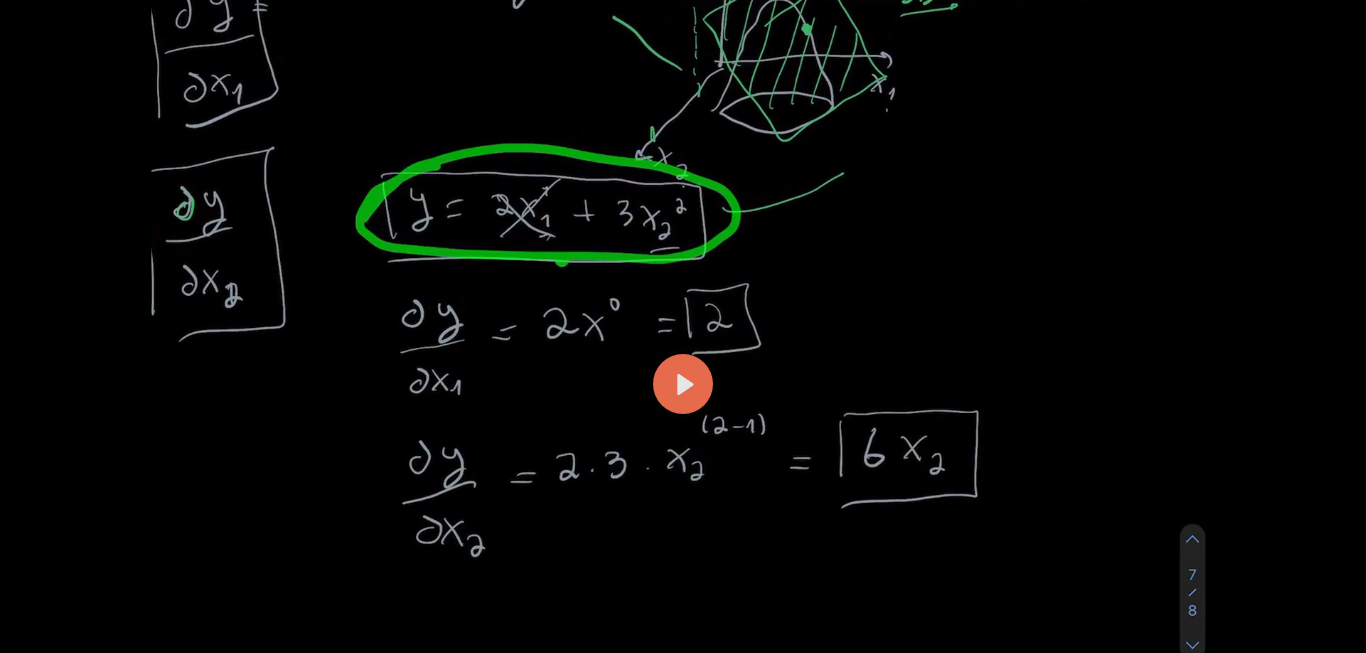 ∂y =
∂x₁
x₁
x₂
∂y
∂x₂
y = 2x₁¹ + 3x₂²
∂y/∂x₁ = 2x⁰ = 2
∂y/∂x₂ = 2 · 3 · x₂⁽²⁻¹⁾ = 6x₂
7
/
8